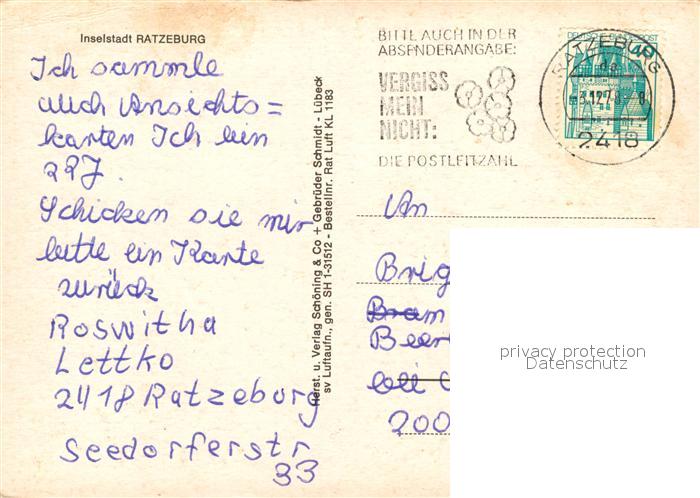 Inselstadt RATZEBURG
Ich sammle
auch Ansichts=
karten Ich bin
22J.
Schicken sie mir
bitte ein Karte
zurück
Roswitha
Lettko
2418 Ratzeburg
Seedorferstr
33
Herst. u. Verlag Schöning & Co + Gebrüder Schmidt - Lübeck
sv Luftaufn., gen. SH 1-31512 - Bestellnr. Rat Luft KL 1183
BITTE AUCH IN DER
ABSENDERANGABE:
VERGISS
MEIN
NICHT:
DIE POSTLEITZAHL
DEUTSCHE BUNDESPOST
40
RATZEBURG
2418
An
Brig
Bram
Beer
200
privacy protection
Datenschutz